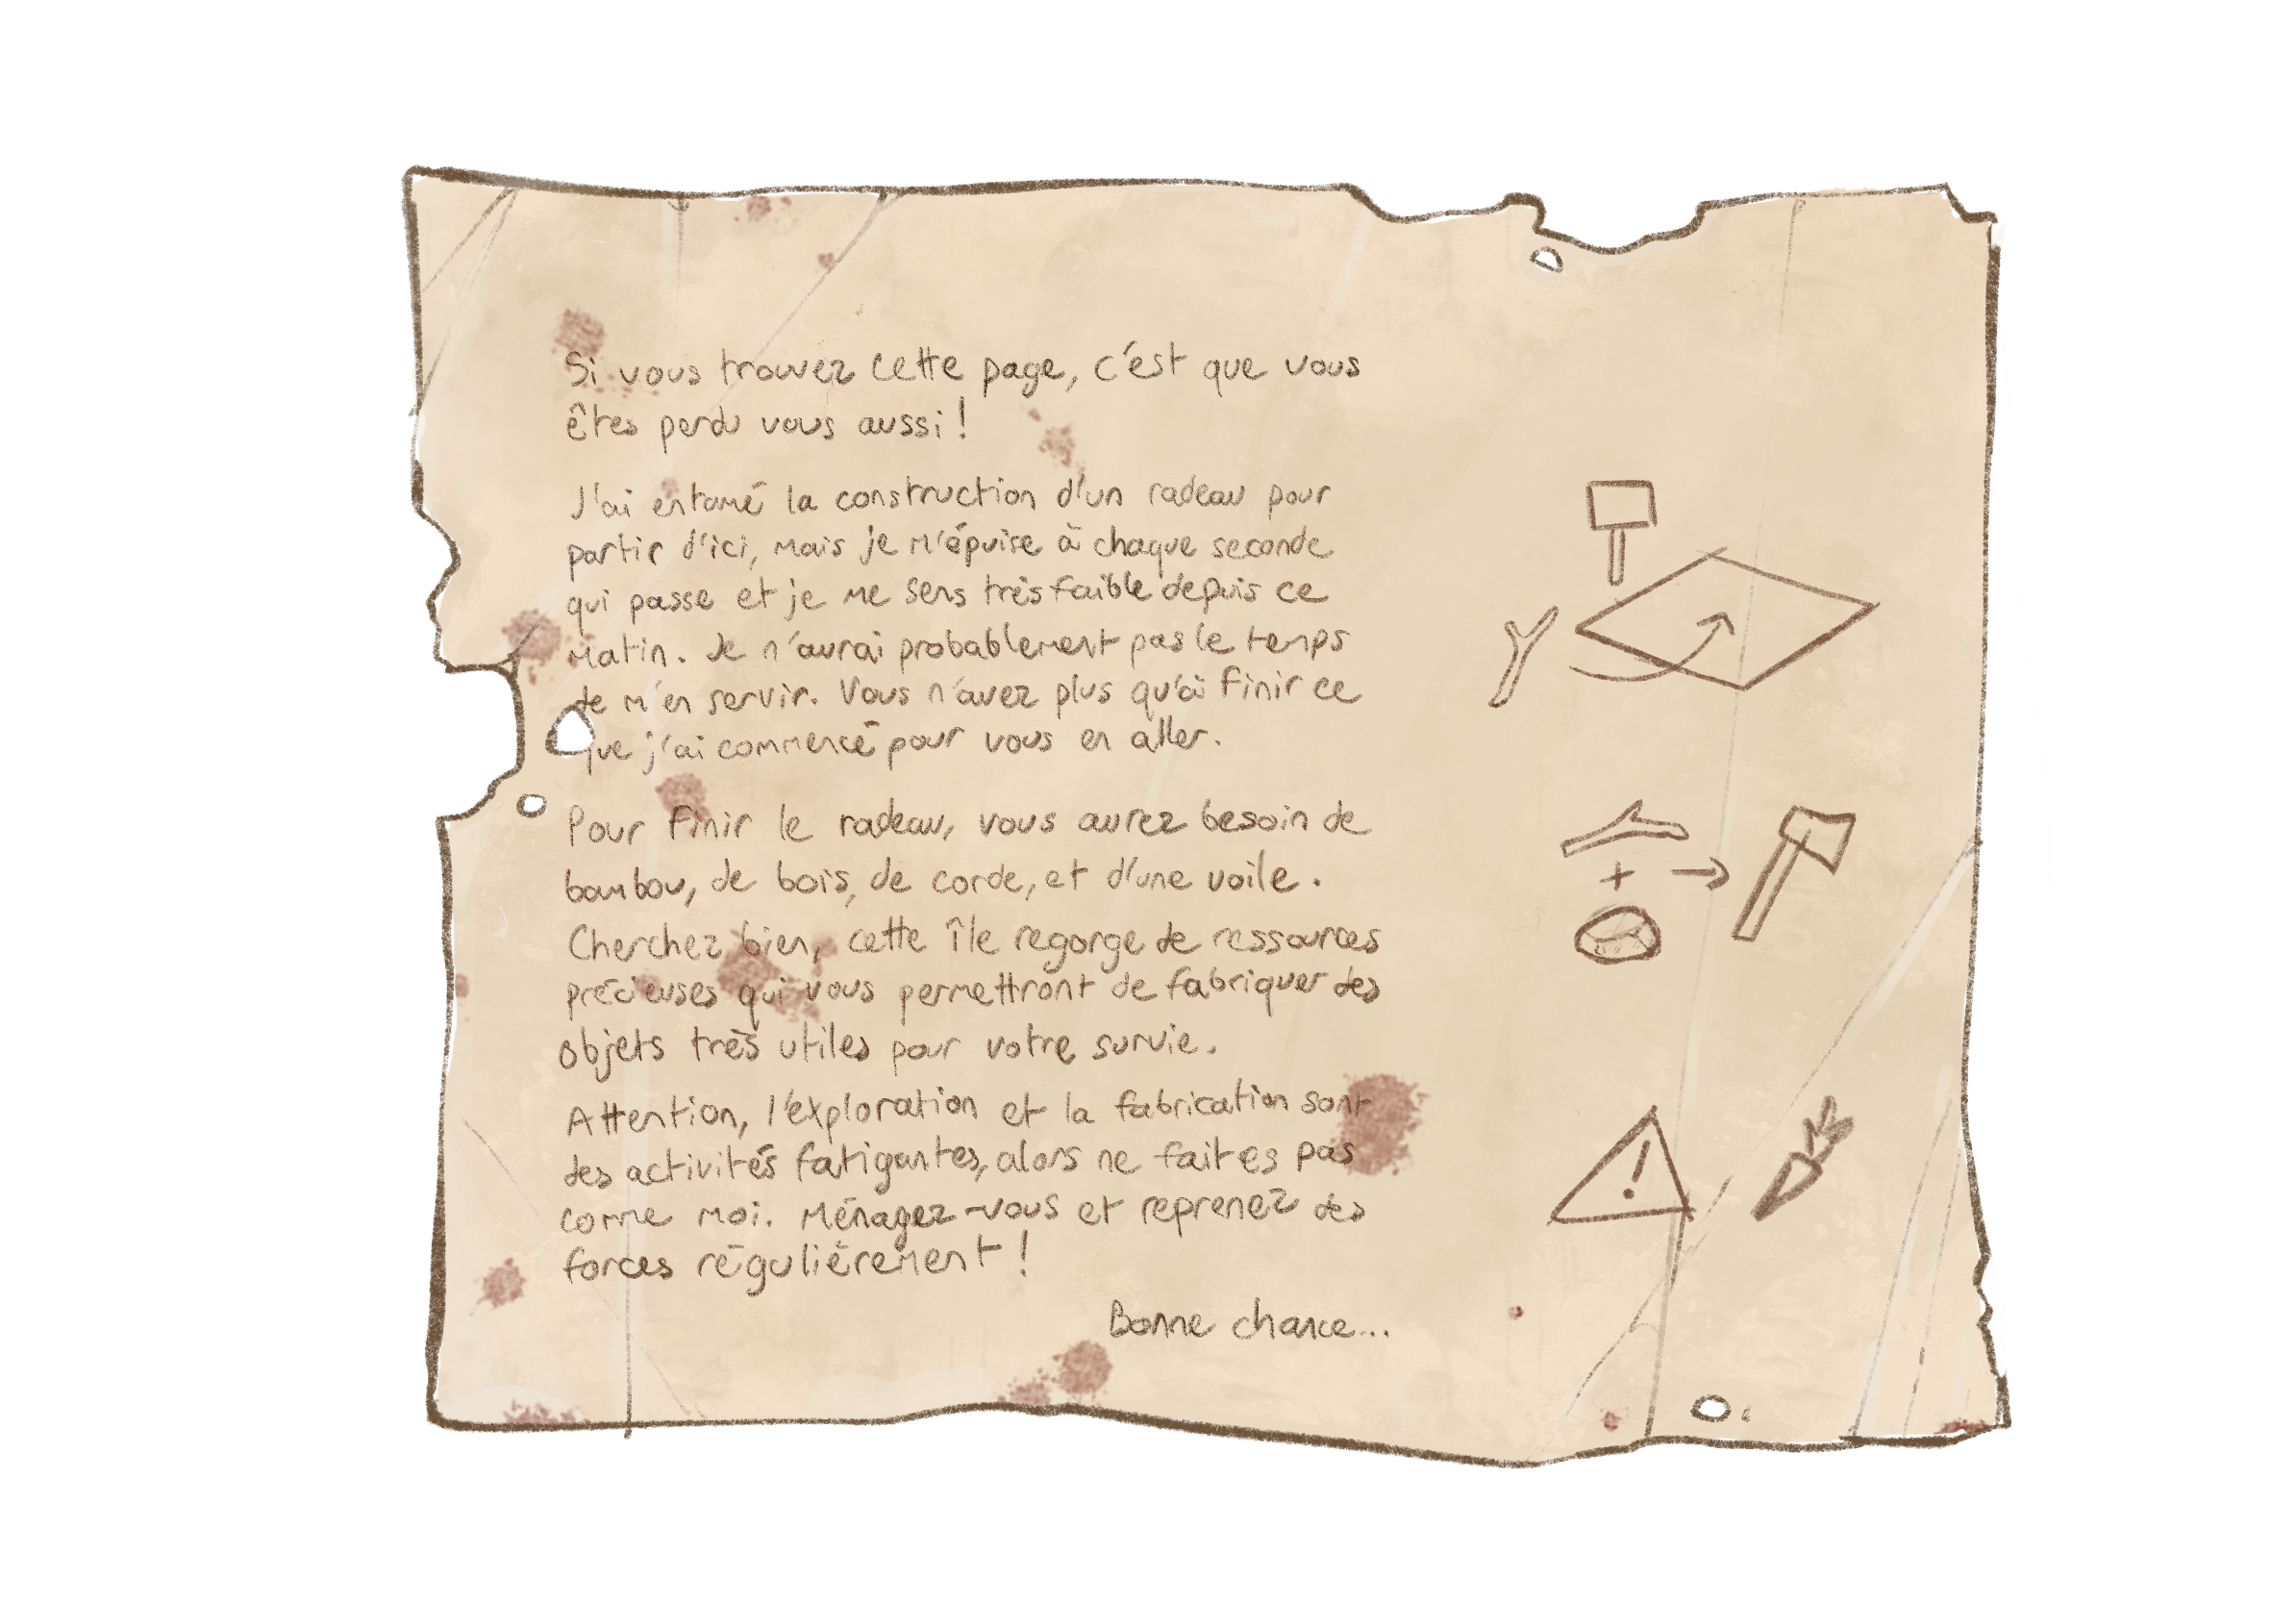 Si vous trouvez cette page, c'est que vous
êtes perdu vous aussi !
J'ai entamé la construction d'un radeau pour
partir d'ici, mais je m'épuise à chaque seconde
qui passe et je me sens très faible depuis ce
matin. Je n'aurai probablement pas le temps
de m'en servir. Vous n'avez plus qu'à finir ce
que j'ai commencé pour vous en aller.
Pour finir le radeau, vous aurez besoin de
bambou, de bois, de corde, et d'une voile.
Cherchez bien, cette île regorge de ressources
précieuses qui vous permettront de fabriquer des
objets très utiles pour votre survie.
Attention, l'exploration et la fabrication sont
des activités fatigantes, alors ne faites pas
comme moi. Ménagez-vous et reprenez des
forces régulièrement !
Bonne chance...